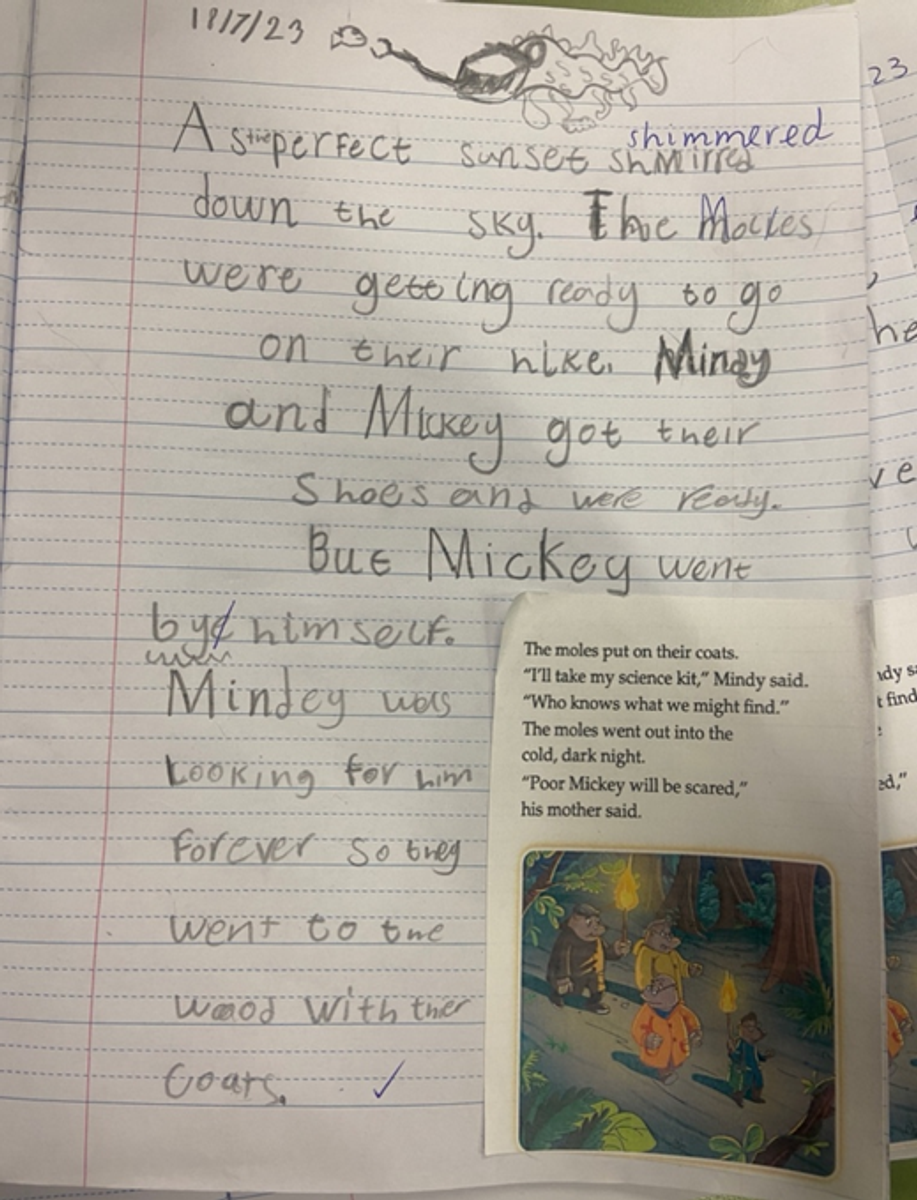 18/7/23
A perfect sunset shmirred
shimmered
down the sky. The Moles
were getting ready to go
on their hike. Mindy
and Mickey got their
Shoes and were ready.
But Mickey went
by himself.
Mindey was
Looking for him
forever so they
went to the
wood with ther
Coats.
The moles put on their coats.
"I'll take my science kit," Mindy said.
"Who knows what we might find."
The moles went out into the
cold, dark night.
"Poor Mickey will be scared,"
his mother said.
23
he
ve
ndy sa
t find
ed,"